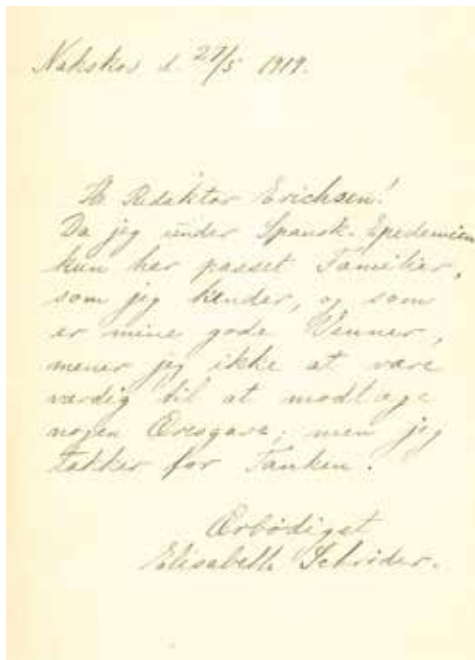 Nakskov d. 27/5 1919.
Hr Redaktør Erichsen!
Da jeg under Spansk-Epedemien
kun har passet Familier,
som jeg kender, og som
er mine gode Venner,
mener jeg ikke at være
værdig til at modtage
nogen Æresgave; men jeg
takker for Tanken.
Ærbødigst
Elisabeth Schrøder.